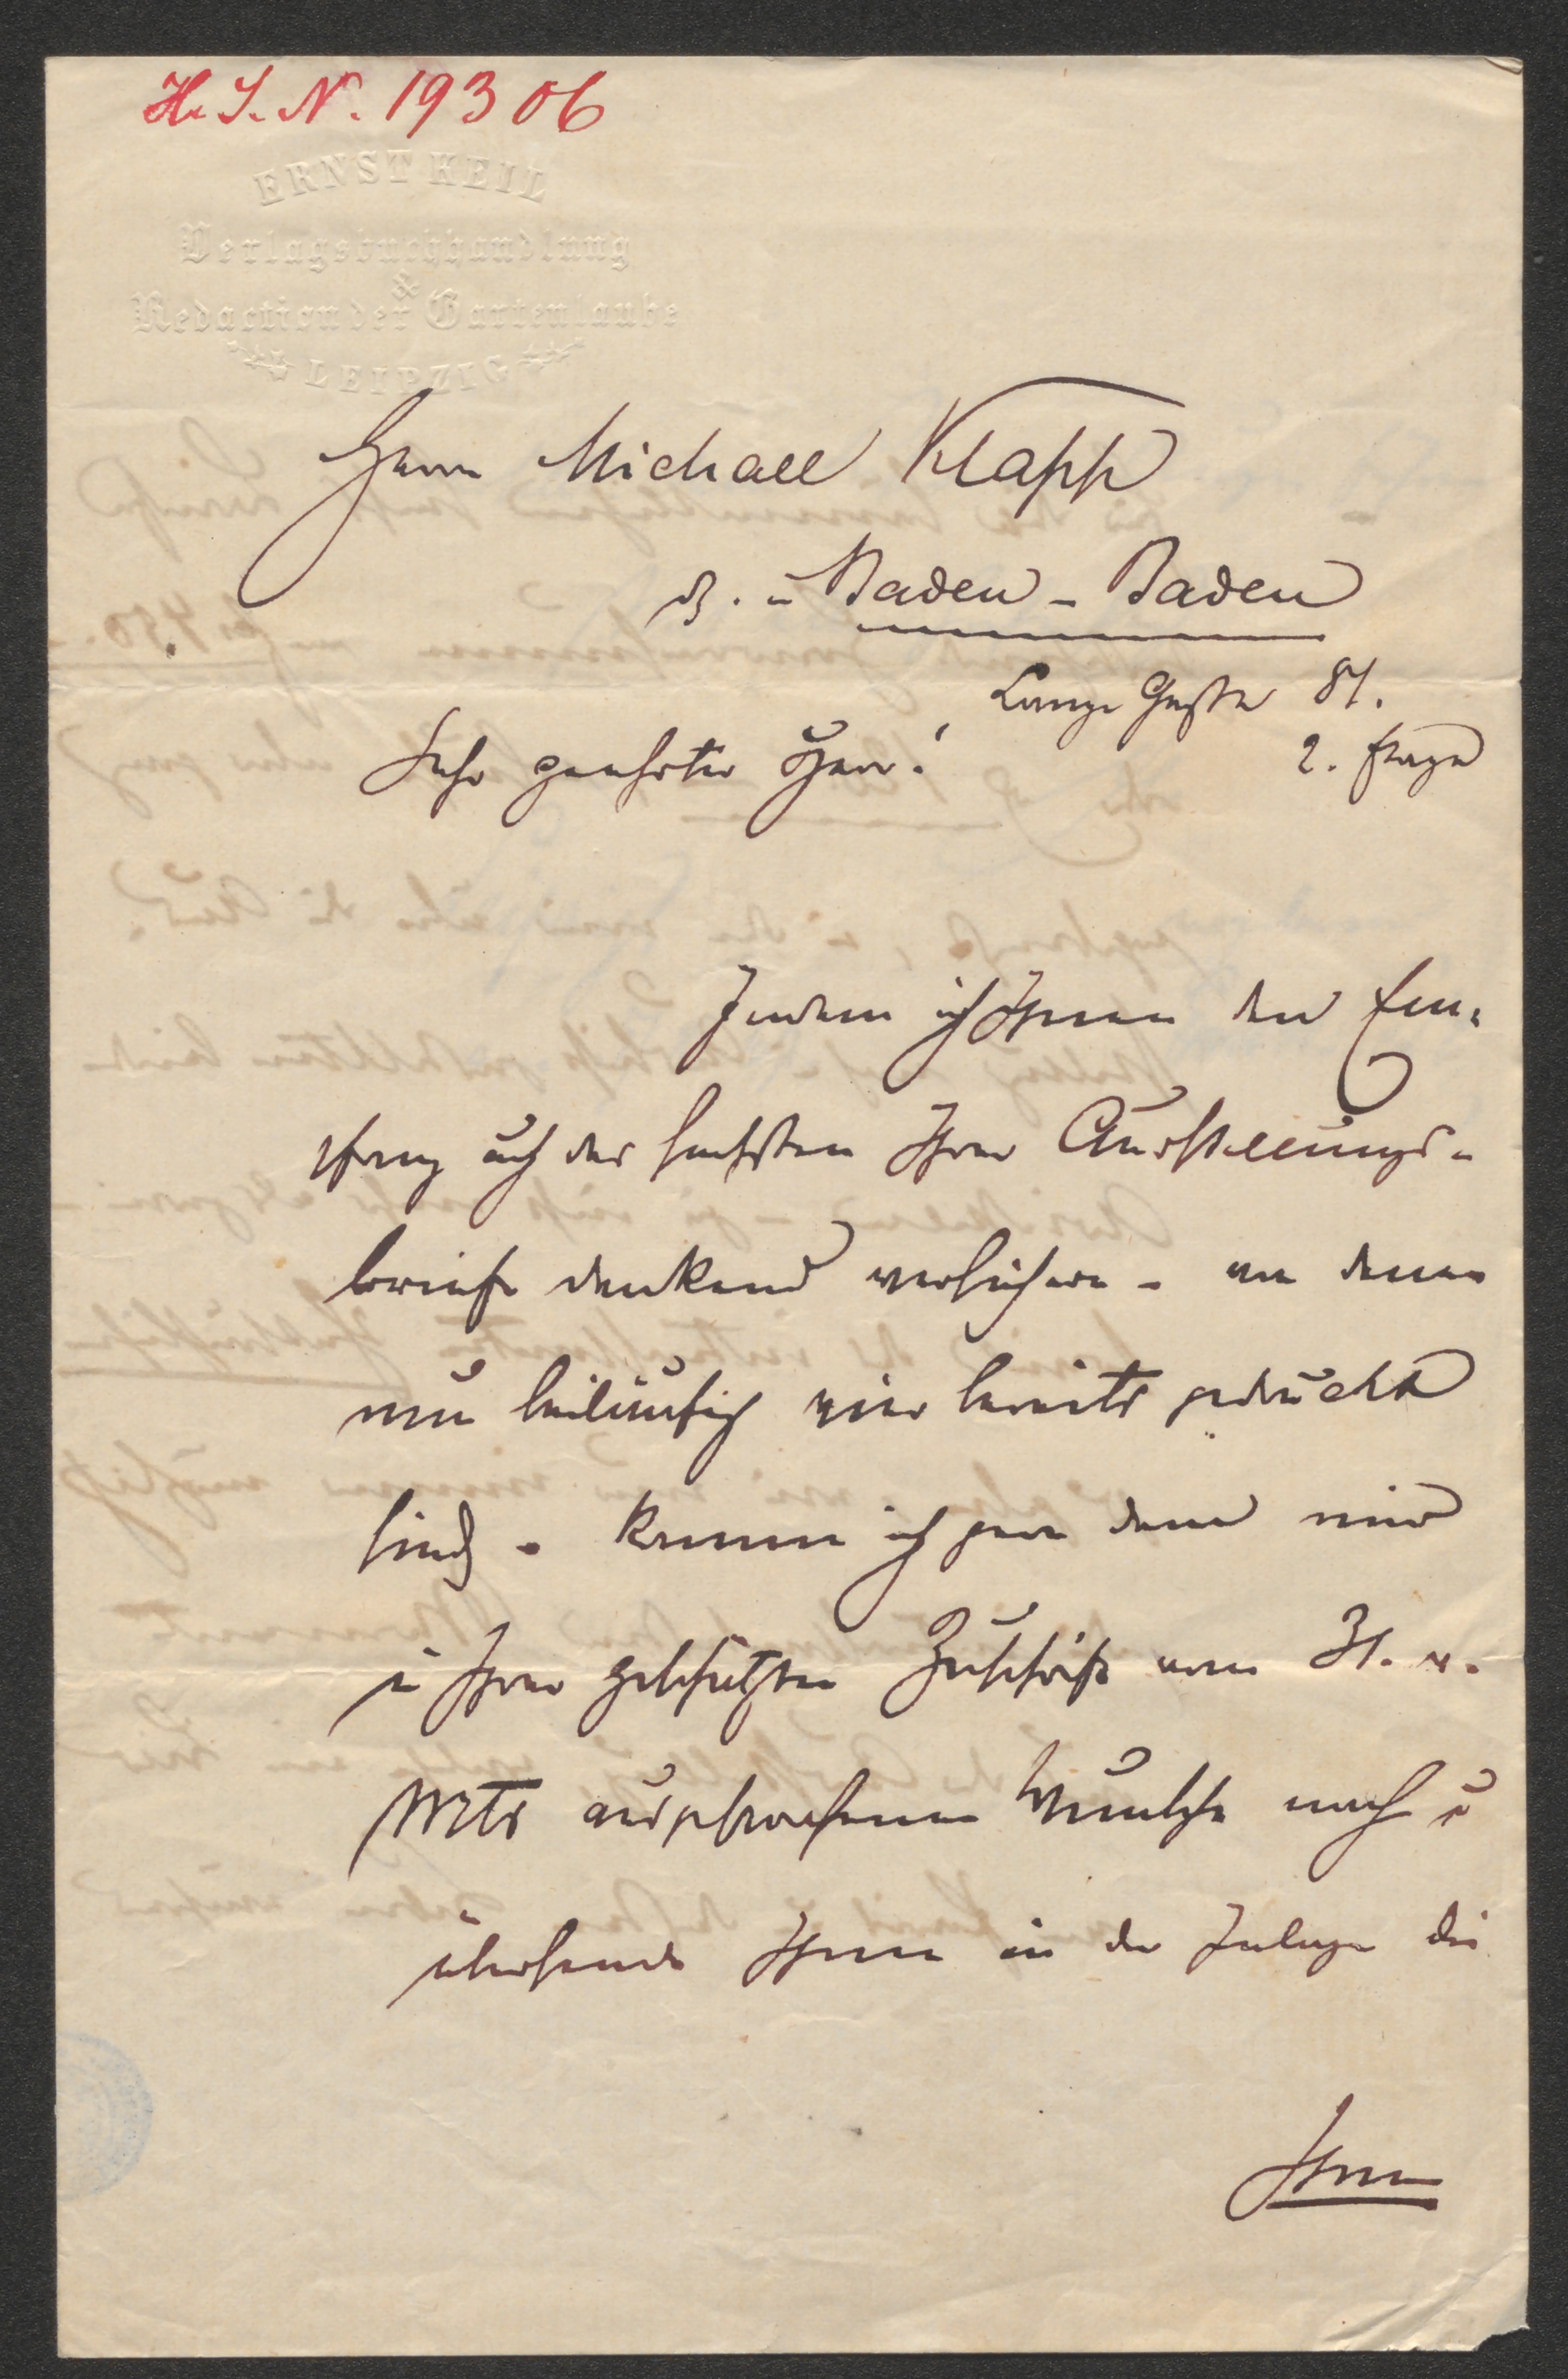 H. I. N. 19306
ERNST KEIL
Verlagsbuchhandlung
&
Redaction der Gartenlaube
LEIPZIG
Herrn Michael Klapp
z. Z. in Baden-Baden
Lange Gasse 81.
Sehr geehrter Herr!
2. Etage
Indem ich Ihnen den Em-
pfang auch des sechsten Ihrer Ausstellungs-
briefe dankend versichere - von denen
nun beiläufig vier bereits gedruckt
sind - komme ich gern dem mir
in Ihrer geschätzten Zuschrift vom 31. v.
Mts ausgesprochenen Wunsche nach u
übersende Ihnen in der Inlage die
Ihnen